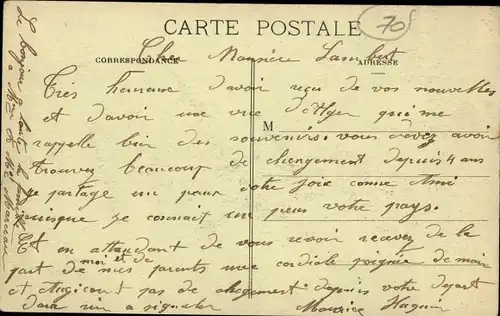 70
CARTE POSTALE
CORRESPONDANCE
ADRESSE
Cher Monsiere Lambert
Très heureuse d'avoir reçu de vos nouvelles
et d'avoir une vue d'Alger qui me
M
rappelle bien des souvenirs. vous devez avoir
trouvez beaucoup de changement depuis 4 ans
je partage un peux votre joie comme Ami
puisque je connait un peux votre pays.
Et en attendant de vous revoir recevez de la
part de mes parents une cordiale poignée de main
moi et de
et depuis votre départ
rien a signaler Maurice
Le bonjour a toute la famille
a Mr et Mme